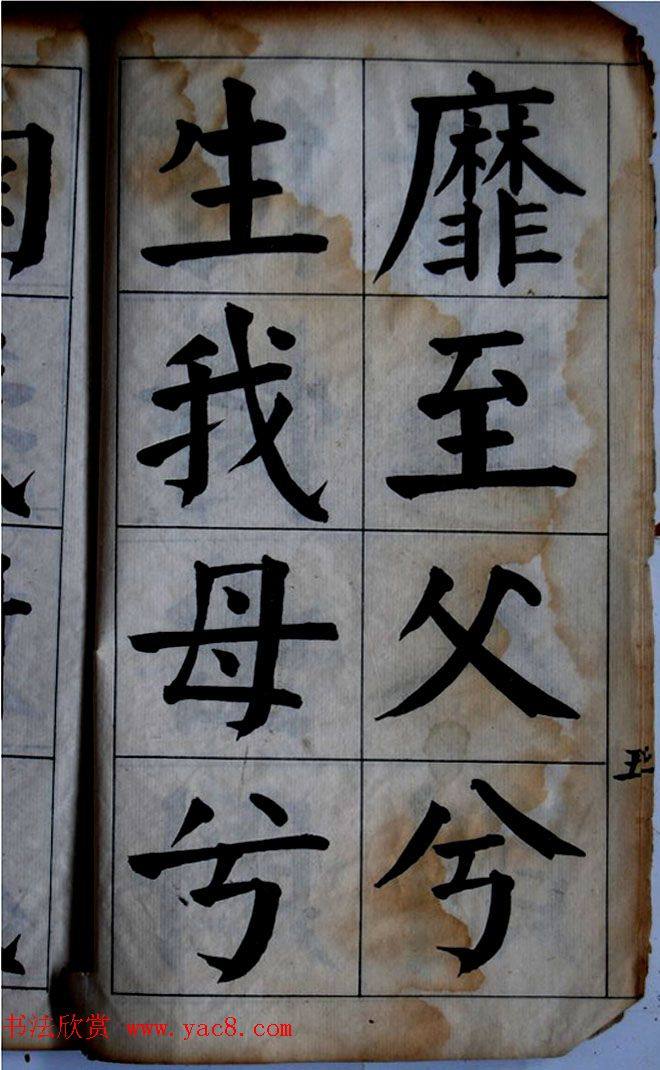 靡至父兮
生我母兮
书法欣赏 www.yac8.com